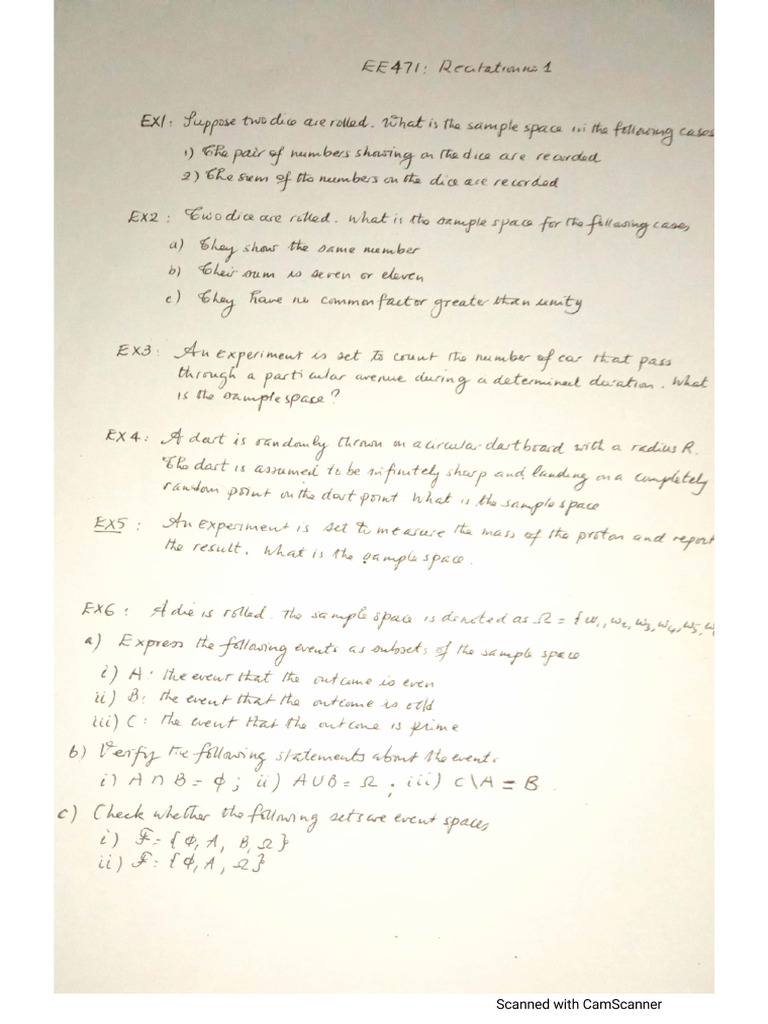 EE471: Recitation no 1
EX1: Suppose two dice are rolled. What is the sample space in the following cases
1) The pair of numbers showing on the dice are recorded
2) The sum of the numbers on the dice are recorded
EX2: Two dice are rolled. What is the sample space for the following cases
a) They show the same number
b) Their sum is seven or eleven
c) They have no common factor greater than unity
EX3: An experiment is set to count the number of car that pass
through a particular avenue during a determined duration. What
is the sample space?
EX4: A dart is randomly thrown on a circular dartboard with a radius R.
The dart is assumed to be infinitely sharp and, landing on a completely
random point on the dart point What is the sample space
EX5: An experiment is set to measure the mass of the proton and report
the result. What is the sample space.
EX6: A die is rolled. The sample space is denoted as Ω = {ω1, ω2, ω3, ω4, ω5, ω
a) Express the following events as subsets of the sample space
i) A: the event that the outcome is even
ii) B: the event that the outcome is odd
iii) C: the event that the outcome is prime
b) Verify the following statements about the events
i) A ∩ B = ϕ; ii) A ∪ B = Ω; iii) C \ A = B
c) Check whether the following sets are event spaces
i) F = {ϕ, A, B, Ω}
ii) F: {ϕ, A, Ω}
Scanned with CamScanner